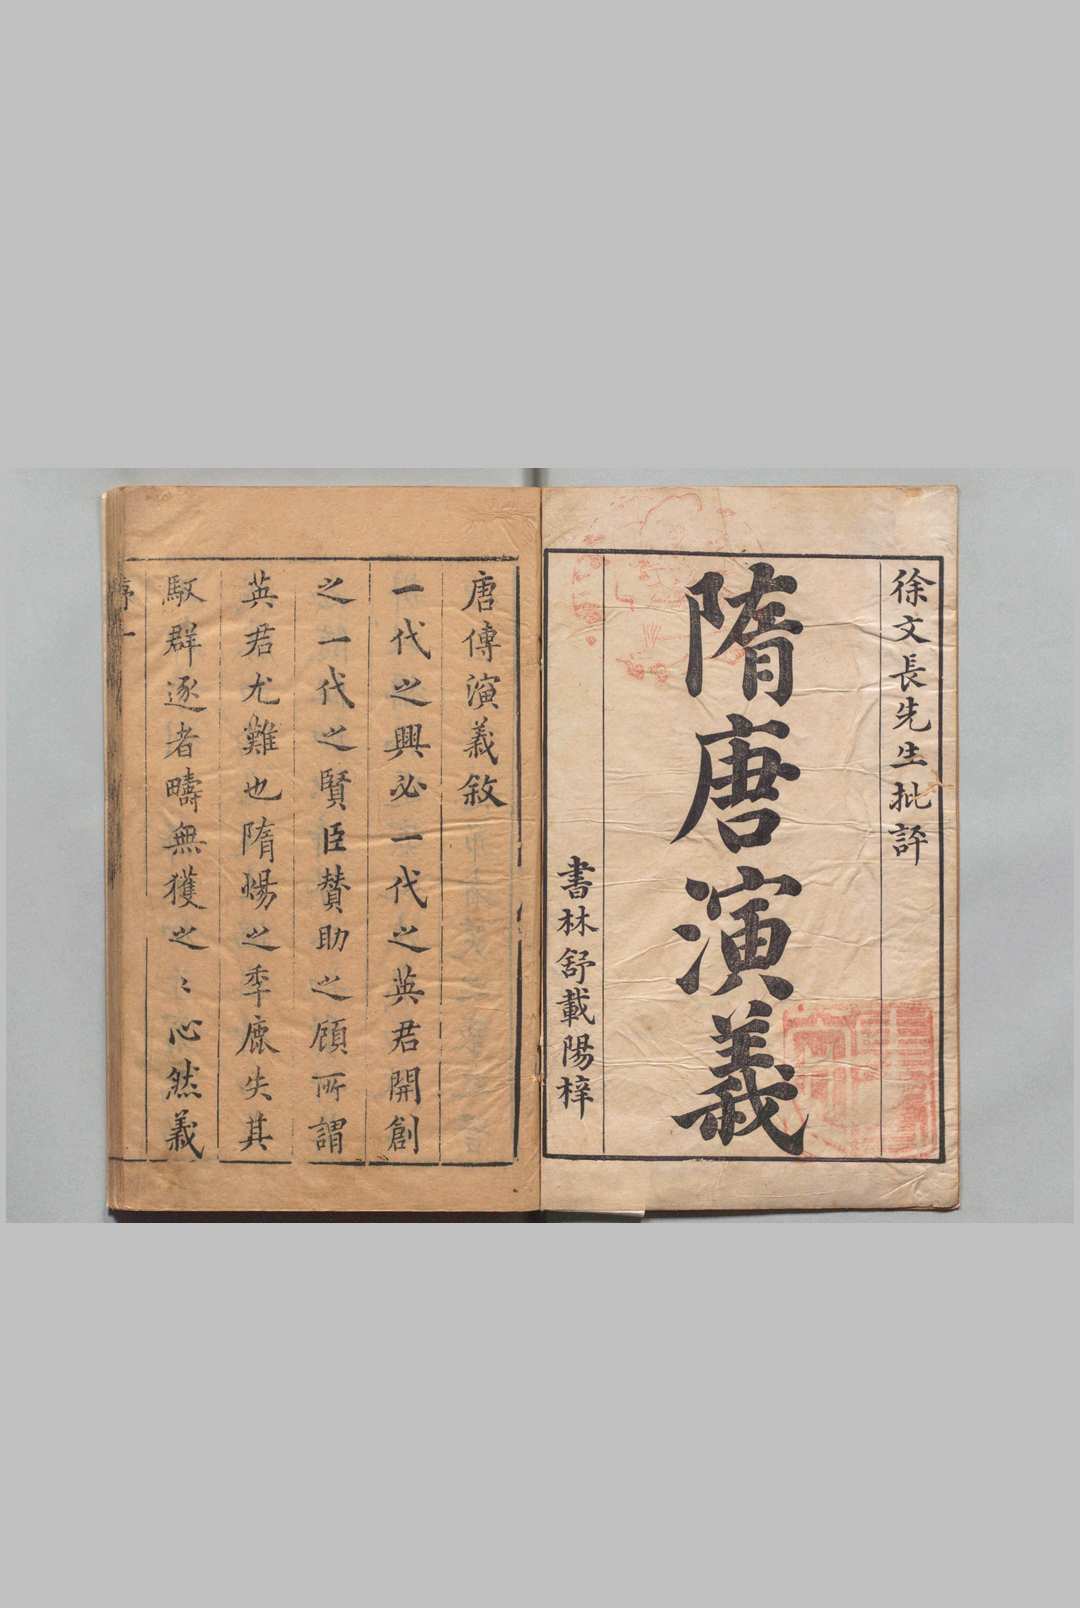 徐文長先生批評
隋唐演義
書林舒載陽梓
唐傳演義敘
一代之興必一代之英君開創
之一代之賢臣賛助之顧所謂
英君尤難也隋煬之季鹿失其
馭群逐者疇無獲之〻心然義
序一